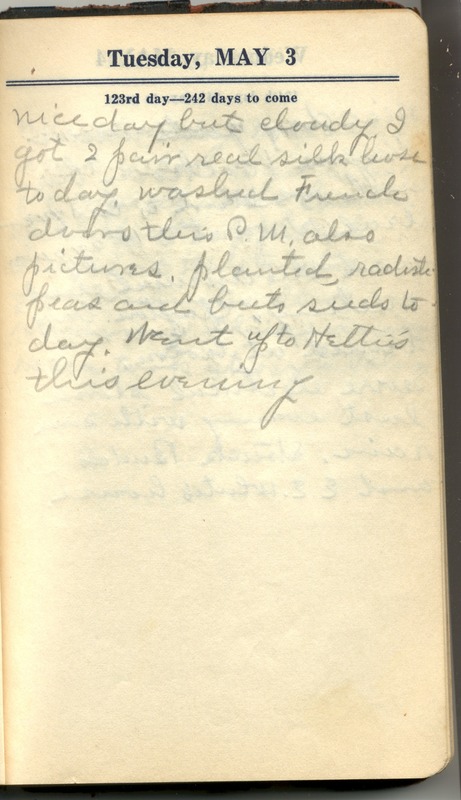 Tuesday, MAY 3
123rd day—242 days to come
nice day but cloudy I
got 2 pair real silk hose
today. washed French
doors this P.M. also
pictures. planted radish
peas and beets seeds to
day. Went up to Hettie's
this evening